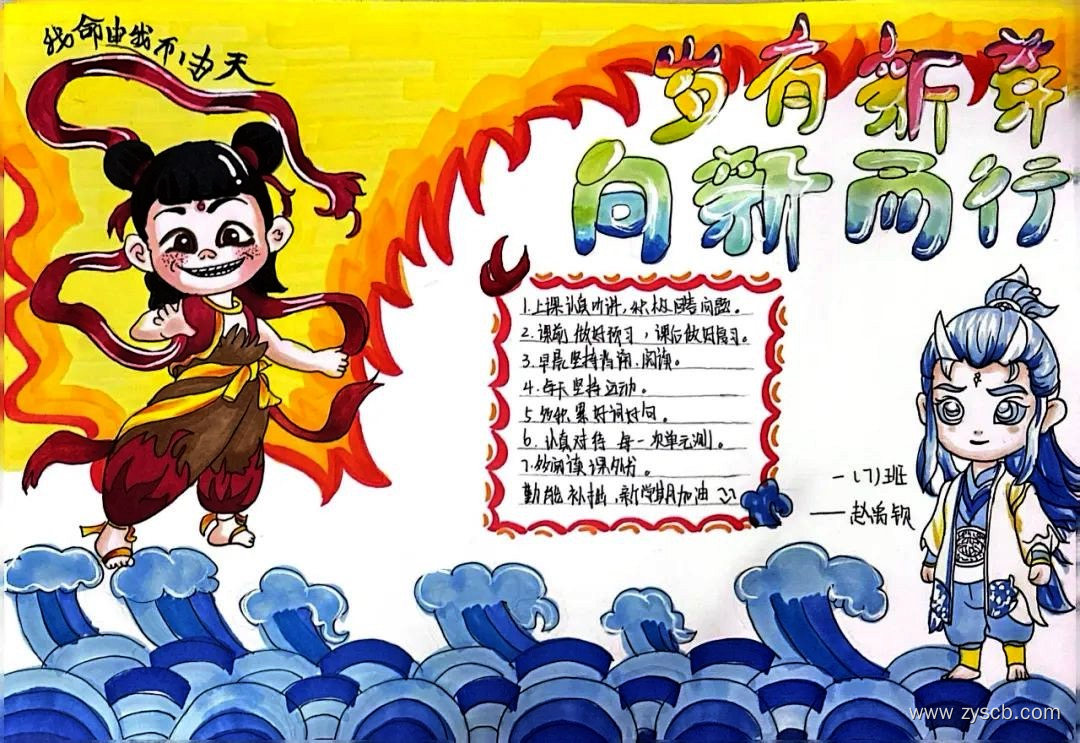 我命由我不由天
岁有新芽
向新而行
1.上课认真听讲,积极回答问题。
2.课前做好预习,课后做好复习。
3.早晨坚持背诵.阅读。
4.每天坚持运动。
5.多积累好词好句。
6.认真对待 每一次单元测。
7.多阅读课外书。
勤能补拙,新学期加油
一(7)班
赵禹钡
www.zyscb.com